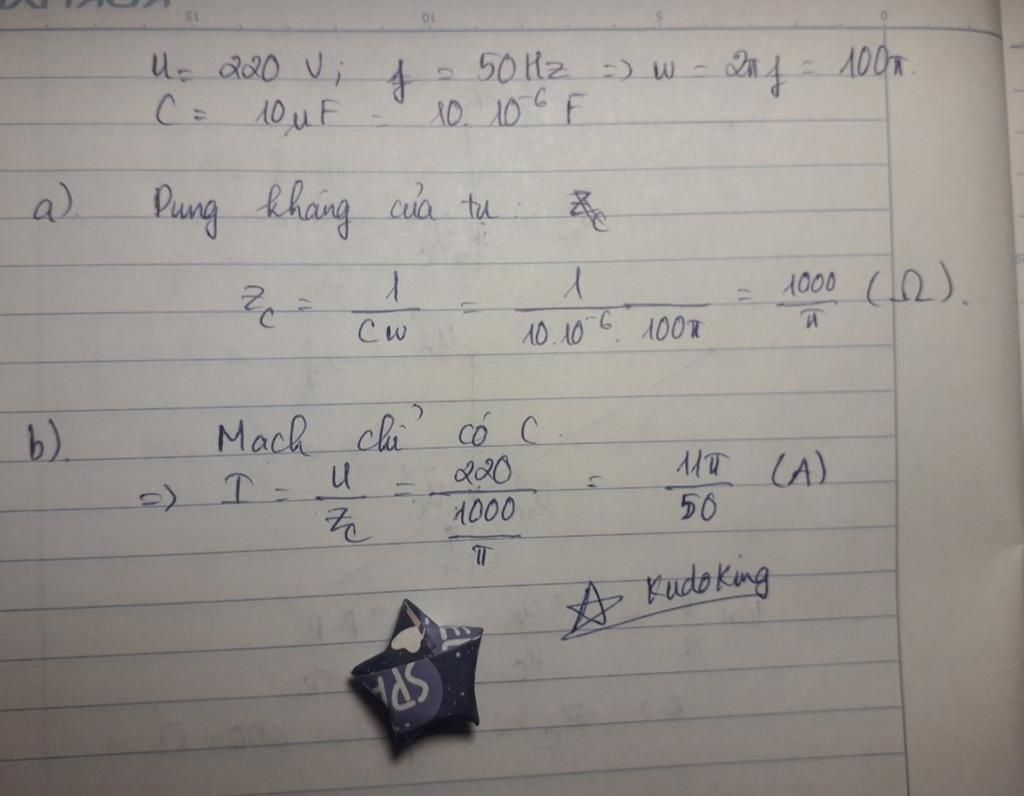 15 10 5 0
U = 220 V; f = 50Hz => w = 2πf = 100π.
C = 10μF = 10. 10⁻⁶ F
a) Dung kháng của tụ: Z_C
Z_C = 1/(Cw) = 1/(10.10⁻⁶. 100π) = 1000/π (Ω).
b). Mạch chỉ có C.
=> I = U/Z_C = 220/(1000/π) = 11π/50 (A)
☆ KudoKing
SPA